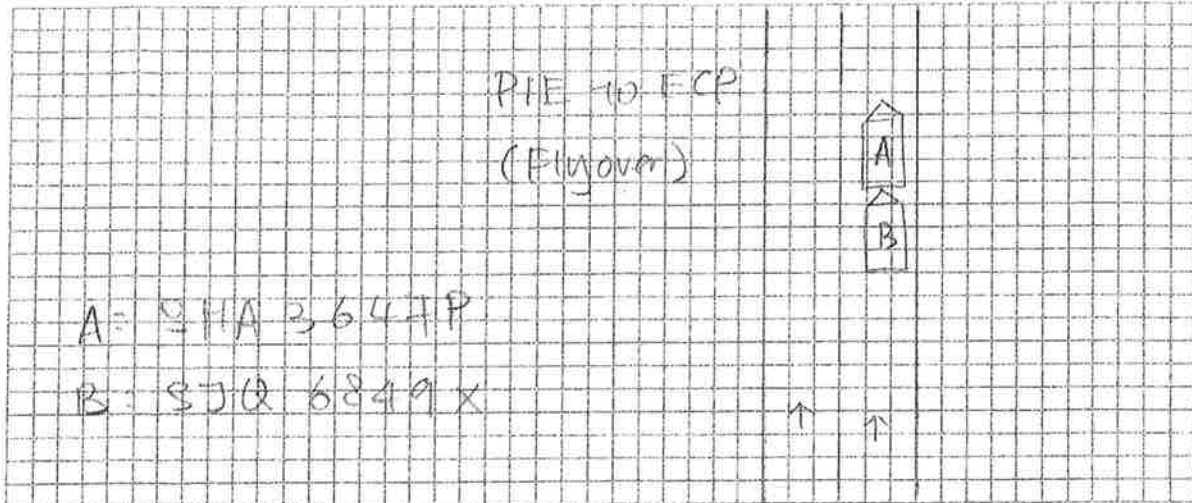 PIE to ECP
(Flyover)
A
B
A= SHA 3647P
B: SJQ 6849X